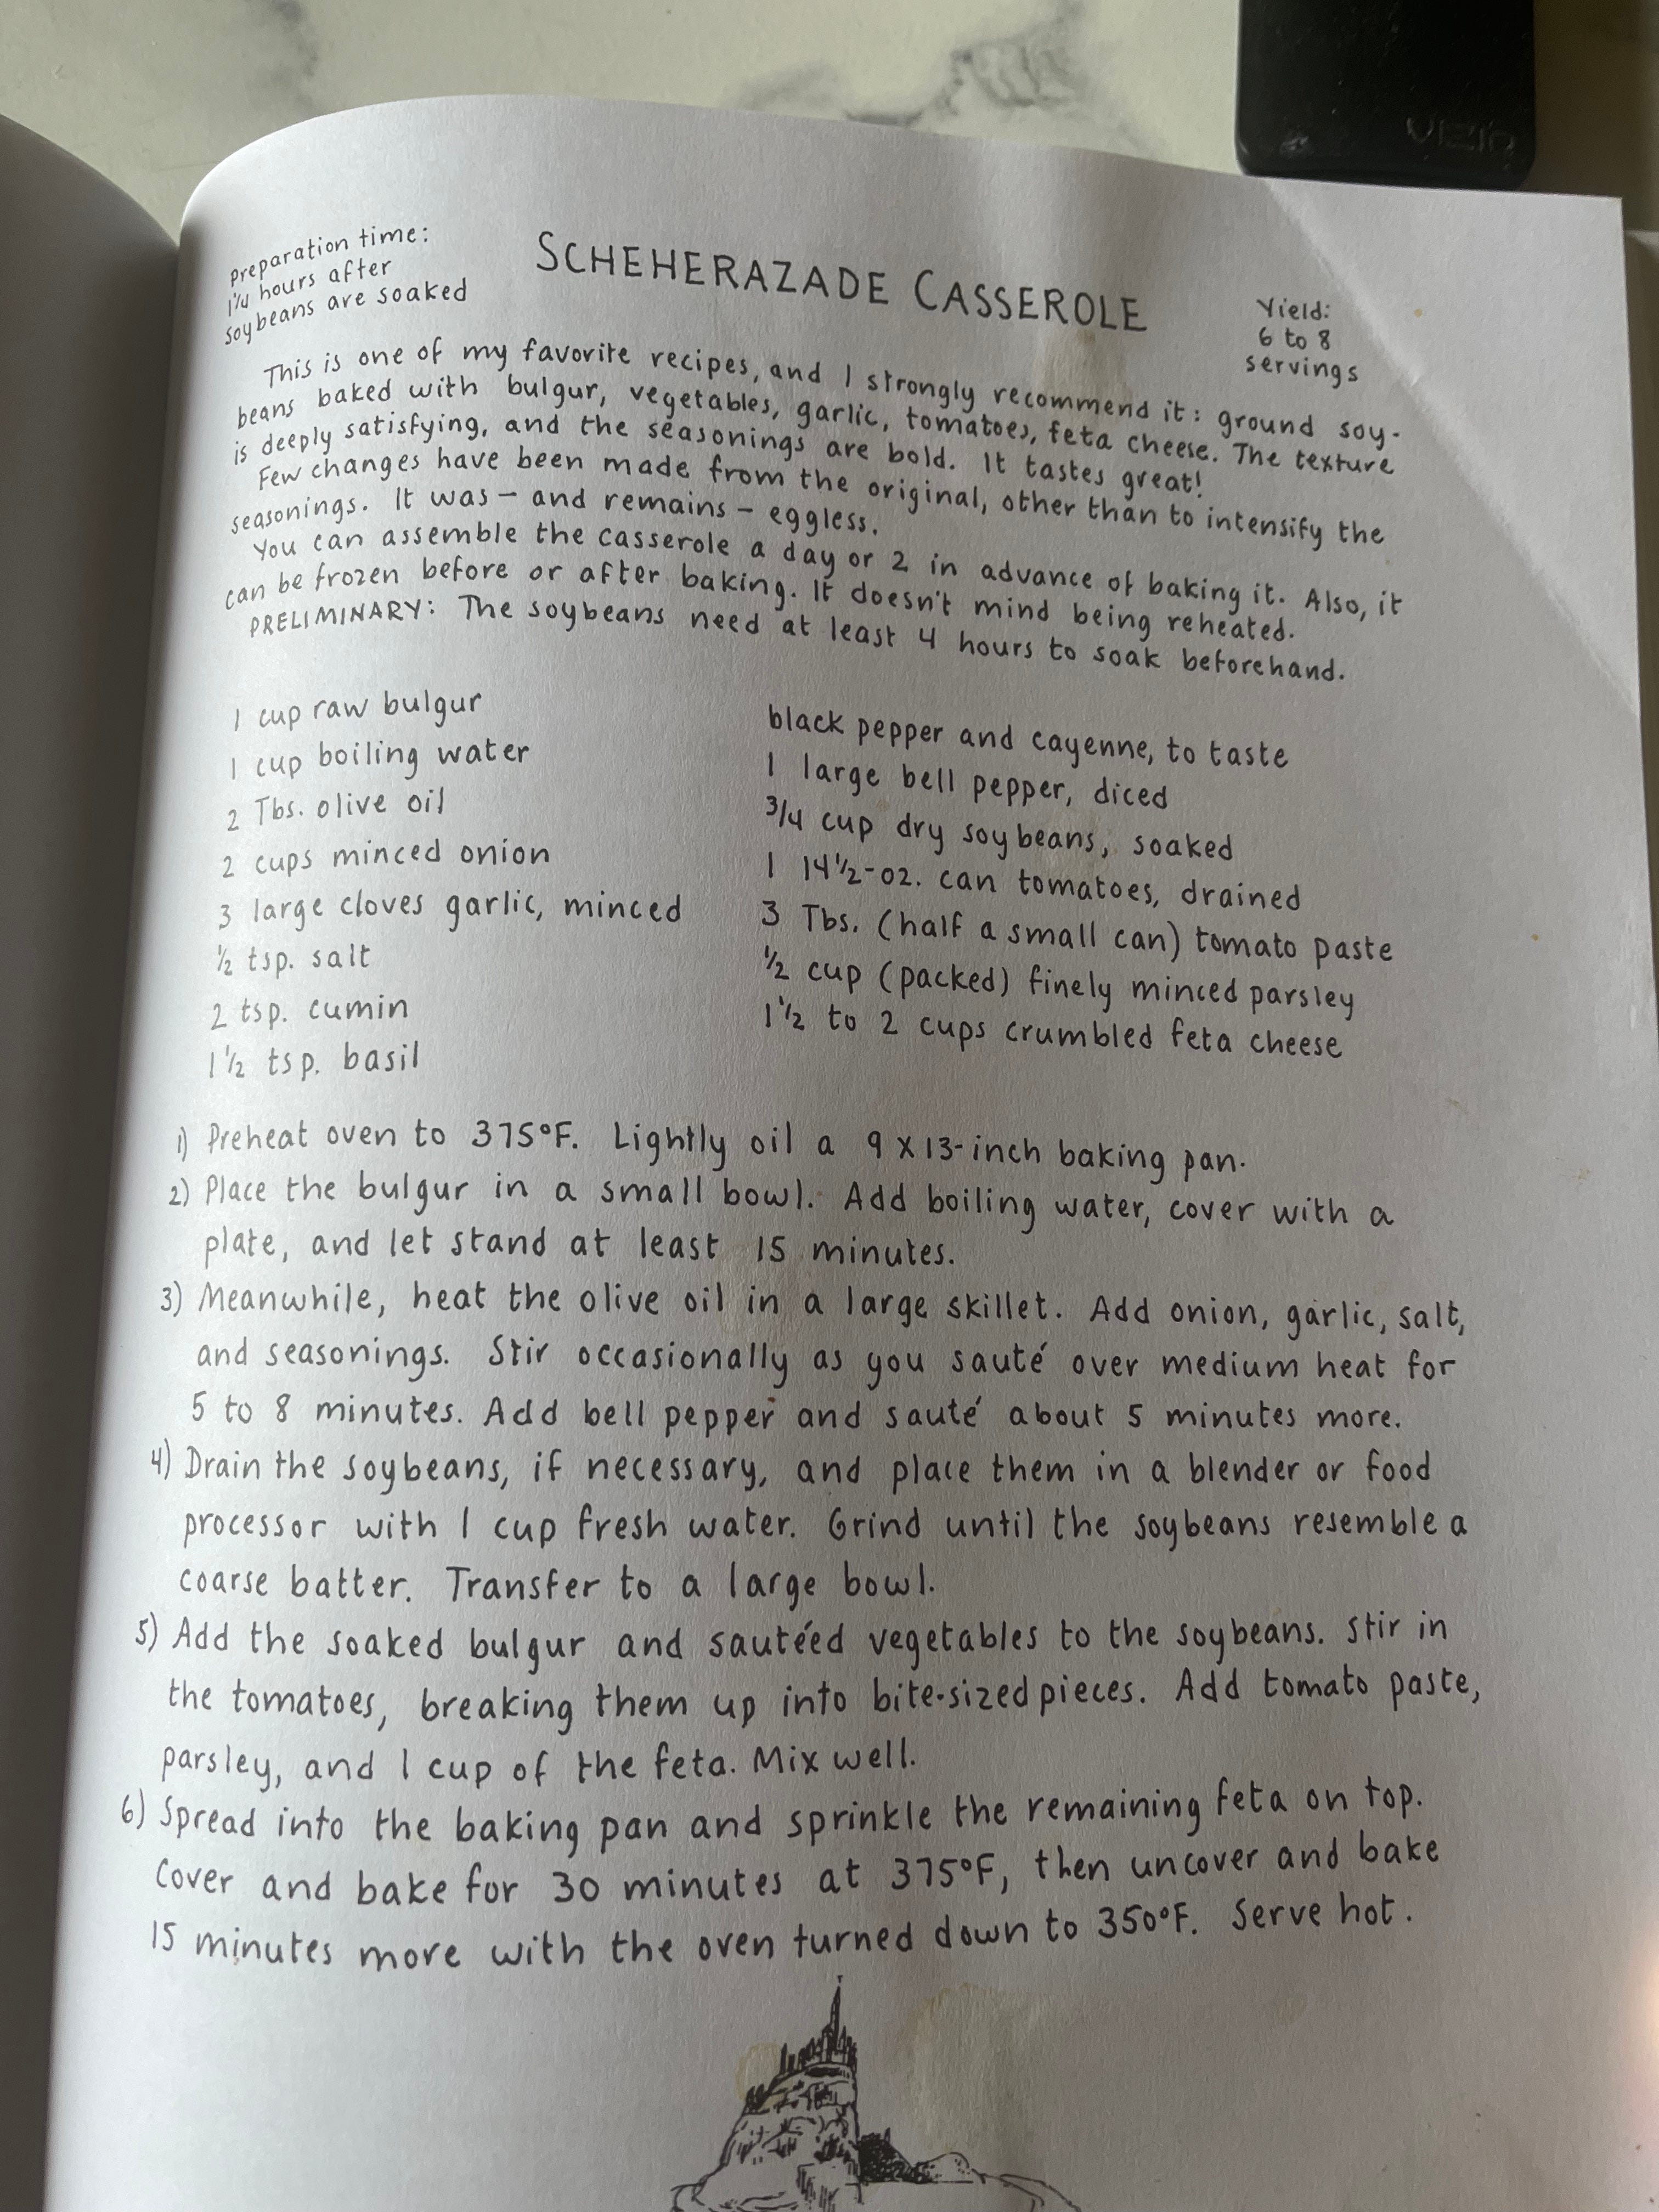 VIZIO
Preparation time:
1¼ hours after
soybeans are soaked
SCHEHERAZADE CASSEROLE
Yield:
6 to 8
servings
This is one of my favorite recipes, and I strongly recommend it: ground soy-
beans baked with bulgur, vegetables, garlic, tomatoes, feta cheese. The texture
is deeply satisfying, and the seasonings are bold. It tastes great!
Few changes have been made from the original, other than to intensify the
seasonings. It was – and remains – eggless.
You can assemble the casserole a day or 2 in advance of baking it. Also, it
can be frozen before or after baking. It doesn't mind being reheated.
PRELIMINARY: The soybeans need at least 4 hours to soak beforehand.
1 cup raw bulgur
1 cup boiling water
2 Tbs. olive oil
2 cups minced onion
3 large cloves garlic, minced
½ tsp. salt
2 tsp. cumin
1½ tsp. basil
black pepper and cayenne, to taste
1 large bell pepper, diced
¾ cup dry soybeans, soaked
1 14½-oz. can tomatoes, drained
3 Tbs. (half a small can) tomato paste
½ cup (packed) finely minced parsley
1½ to 2 cups crumbled feta cheese
1) Preheat oven to 375°F. Lightly oil a 9 x 13-inch baking pan.
2) Place the bulgur in a small bowl. Add boiling water, cover with a
plate, and let stand at least 15 minutes.
3) Meanwhile, heat the olive oil in a large skillet. Add onion, garlic, salt,
and seasonings. Stir occasionally as you sauté over medium heat for
5 to 8 minutes. Add bell pepper and sauté about 5 minutes more.
4) Drain the soybeans, if necessary, and place them in a blender or food
processor with 1 cup fresh water. Grind until the soybeans resemble a
coarse batter. Transfer to a large bowl.
5) Add the soaked bulgur and sautéed vegetables to the soybeans. Stir in
the tomatoes, breaking them up into bite-sized pieces. Add tomato paste,
parsley, and 1 cup of the feta. Mix well.
6) Spread into the baking pan and sprinkle the remaining feta on top.
Cover and bake for 30 minutes at 375°F, then uncover and bake
15 minutes more with the oven turned down to 350°F. Serve hot.